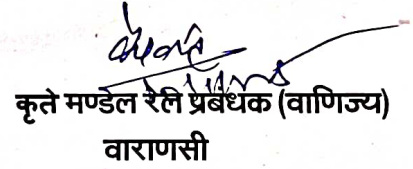 कृते मण्डल रेल प्रबंधक (वाणिज्य)
वाराणसी